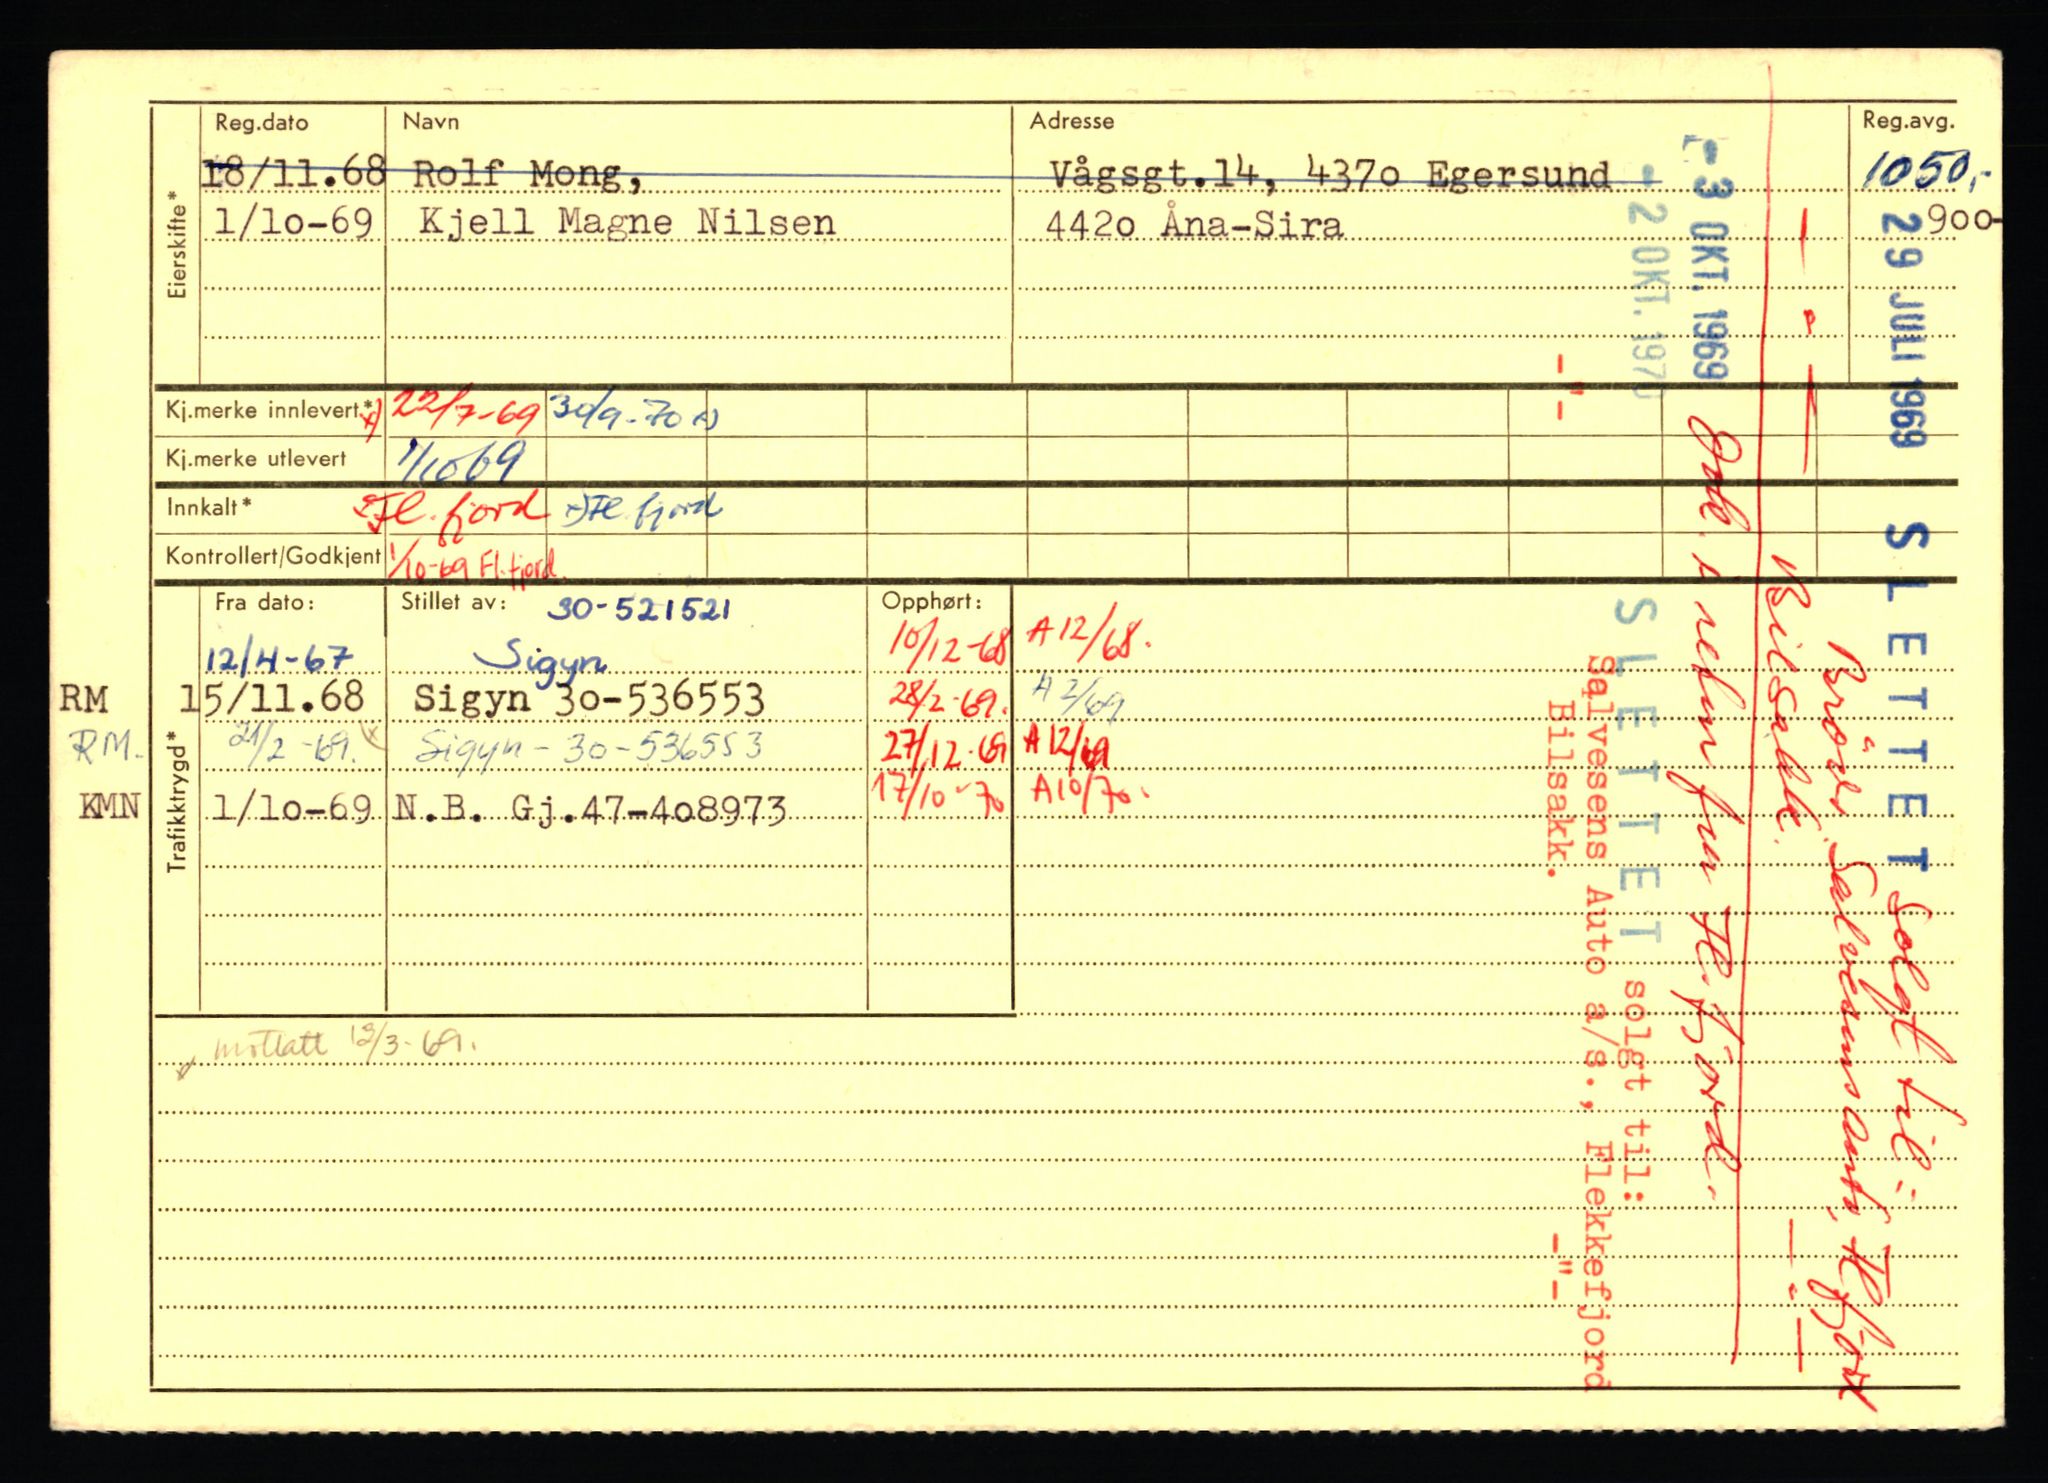 Reg.dato Navn Adresse Reg.avg.
18/11.68 Rolf Mong, Vågsgt.14, 4370 Egersund 1050,-
1/10-69 Kjell Magne Nilsen 4420 Åna-Sira 900-
Eierskifte*
Kj.merke innlevert* x) 22/7-69 30/9-70 x)
Kj.merke utlevert 1/10 69
Innkalt* x) Fl.fjord x) Fl.fjord
Kontrollert/Godkjent 1/10-69 Fl.fjord.
Fra dato: Stillet av: 30-521521 Opphørt:
12/4-67 Sigyn 10/12-68 A 12/68.
RM 15/11.68 Sigyn 30-536553 28/2-69. A 2/69
RM. 21/2-69. x Sigyn - 30-536553 27/12-69 A 12/69
KMN 1/10-69 N.B. Gj.47-408973 17/10-70 A 10/70.
Trafiktrygd*
x mottatt 12/3-69.
29 JULI 1969 SLETTET Solgt til:
Brödr. Salvesens auto, Fl.fjord
Bilsakk.
-"- -"-
-3 OKT. 1969 Omb. i reg fra Fl.fjord.
-2 OKT. 1970 SLETTET solgt til:
Salvesens Auto a/s., Flekkefjord
-"- Bilsakk. -"-